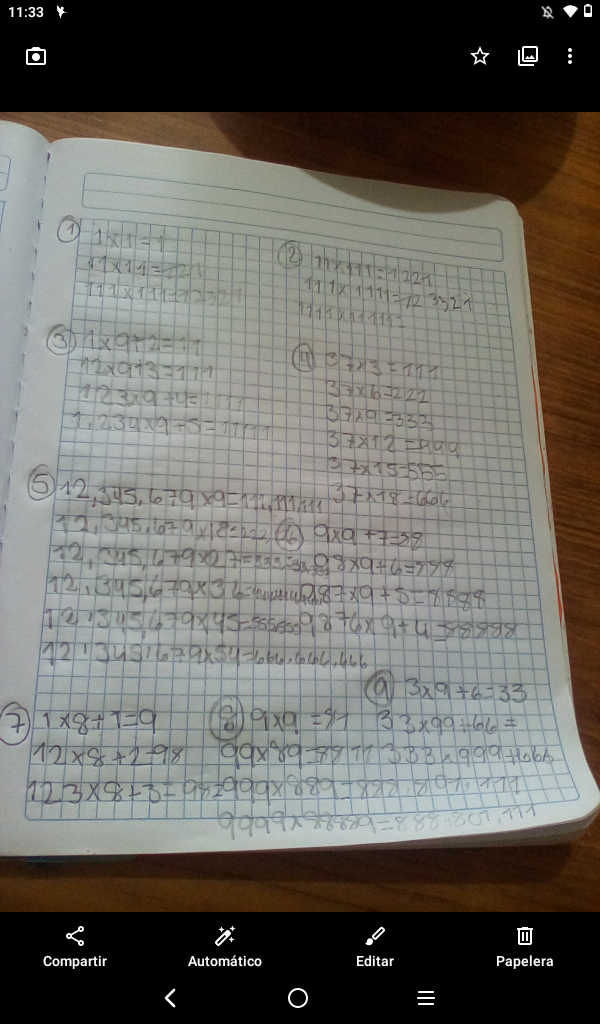 11:33
① 1x1=1
11x11=121
111x111=12321
② 11x111=1221
111x1111=123321
1111x11111=
③ 1x9+2=11
12x9+3=111
123x9+4=1111
1.234x9+5=11111
④ 37x3=111
37x6=222
37x9=333
37x12=444
37x15=555
37x18=666
⑤ 12,345,679x9=111,111,111
12,345.679x18=222
12,345,679x27=333,333,333
12,345,679x36=
12'345,679x45=555,555
12'345'679x54=666,666,666
⑥ 9x9+7=88
98x9+6=888
987x9+5=8888
9876x9+4=88888
⑦ 1x8+1=9
12x8+2=98
123x8+3=98
⑧ 9x9=81
99x89=8811
999x889=888,
9999x8889=888,801,111
⑨ 3x9+6=33
33x99+66=
333x999+666
Compartir
Automático
Editar
Papelera